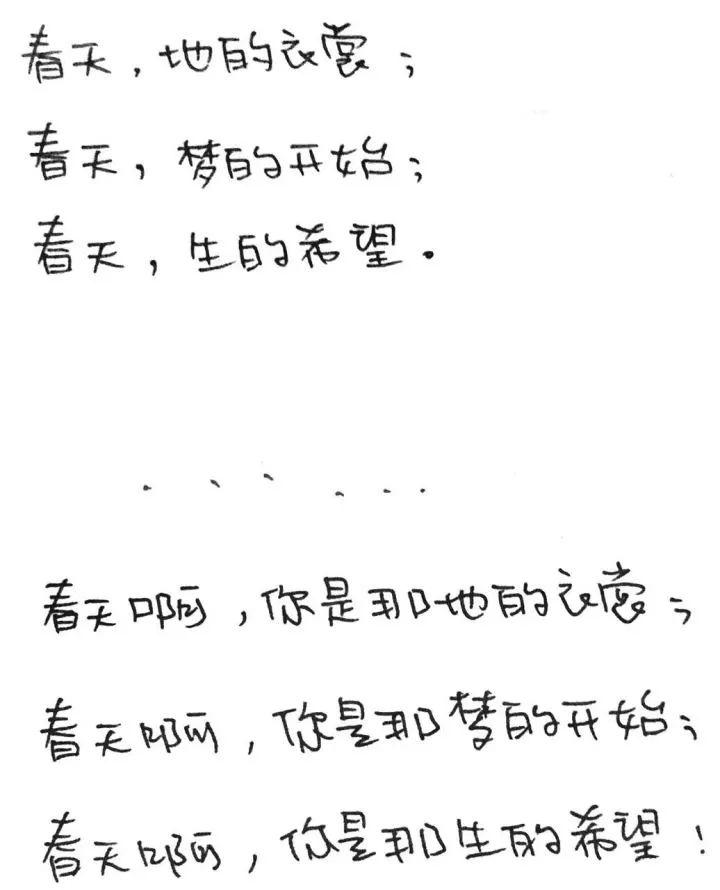 春天，地的衣裳；
春天，梦的开始；
春天，生的希望。
......
春天啊，你是那地的衣裳；
春天啊，你是那梦的开始；
春天啊，你是那生的希望！